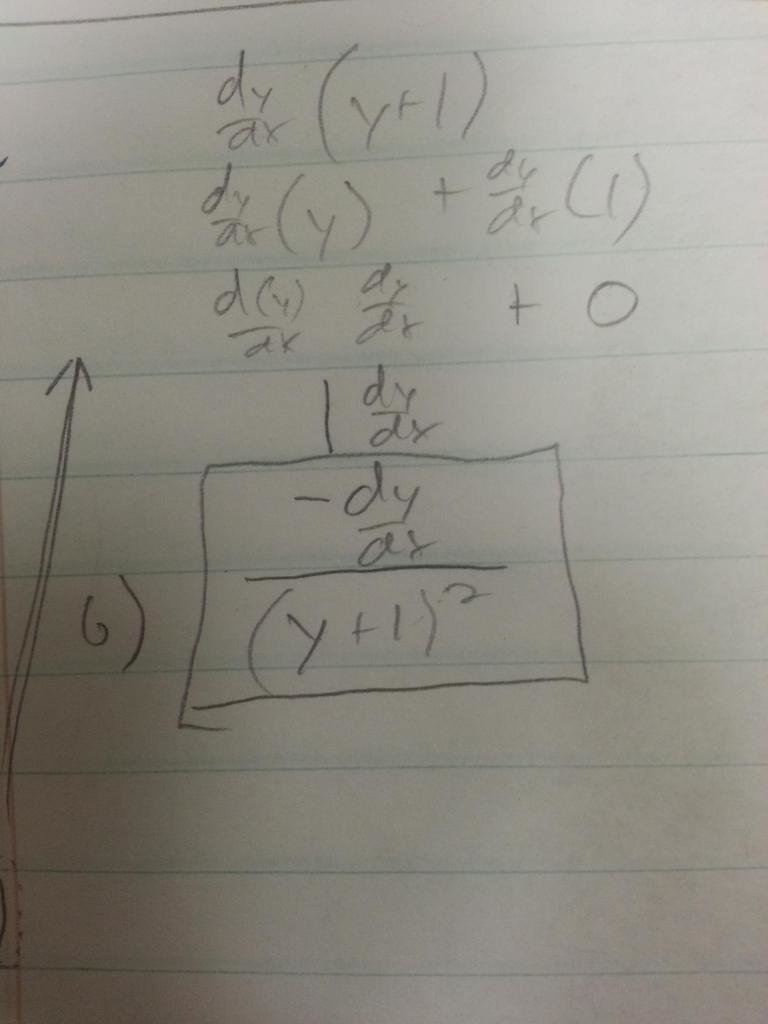 dy/dx (y+1)
dy/dx (y) + dy/dx (1)
d(y)/dx dy/dx + 0
1 dy/dx
6) -dy/dx / (y+1)²